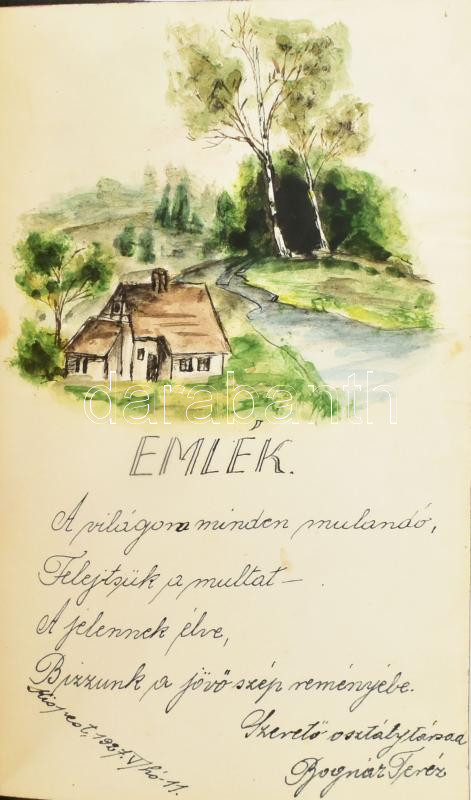 darabanth
EMLÉK.
A világon minden mulandó,
Felejtsük a multat —
A jelennek élve,
Bizzunk a jövő szép reményébe.
Kispest, 1927. V. hó 11.
Szerető osztálytársad
Bognár Teréz